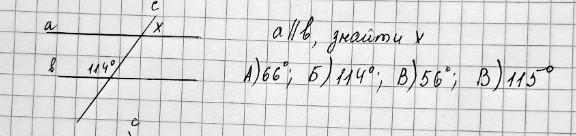 c
a
x
a∥b, знайти x
b
114°
А) 66°; Б) 114°; В) 56°; В) 115°
c